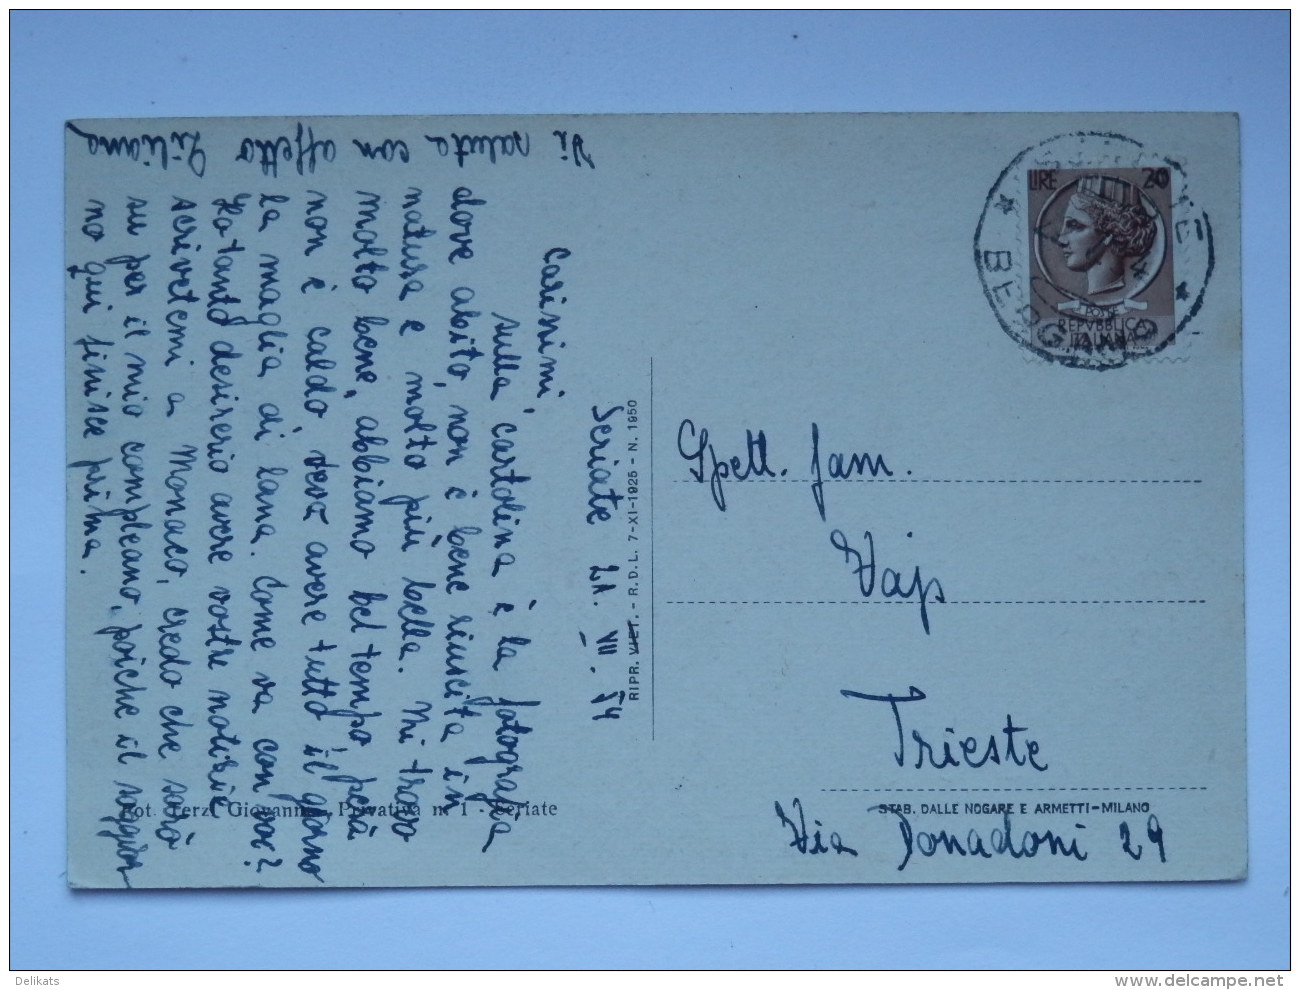 Seriate 21. VII. 54
Carissimi,
sulla cartolina è la fotografia
dove abito, non è bene riuscita in
natura e molto più bella. Mi trovo
molto bene, abbiamo bel tempo, però
non è caldo, devo avere tutto il giorno
la maglia di lana. Come va con voi?
Ho tanto desiderio avere vostre notizie
scrivetemi a Monaco, credo che sarò
su per il mio compleano, poichè il soggior
no qui finisce prima.
Vi saluta con affetto Liliana
RIPR. VIET. - R.D.L. 7-XI-1925 - N. 1950
LIRE 20
POSTE
REPVBBLICA
ITALIANA
BERGAMO
Spett. fam.
Vajs
Trieste
Via Donadoni 29
Fot. Terzi Giovanni - Privativa n. 1 - Seriate
STAB. DALLE NOGARE E ARMETTI-MILANO
Delikats
www.delcampe.net